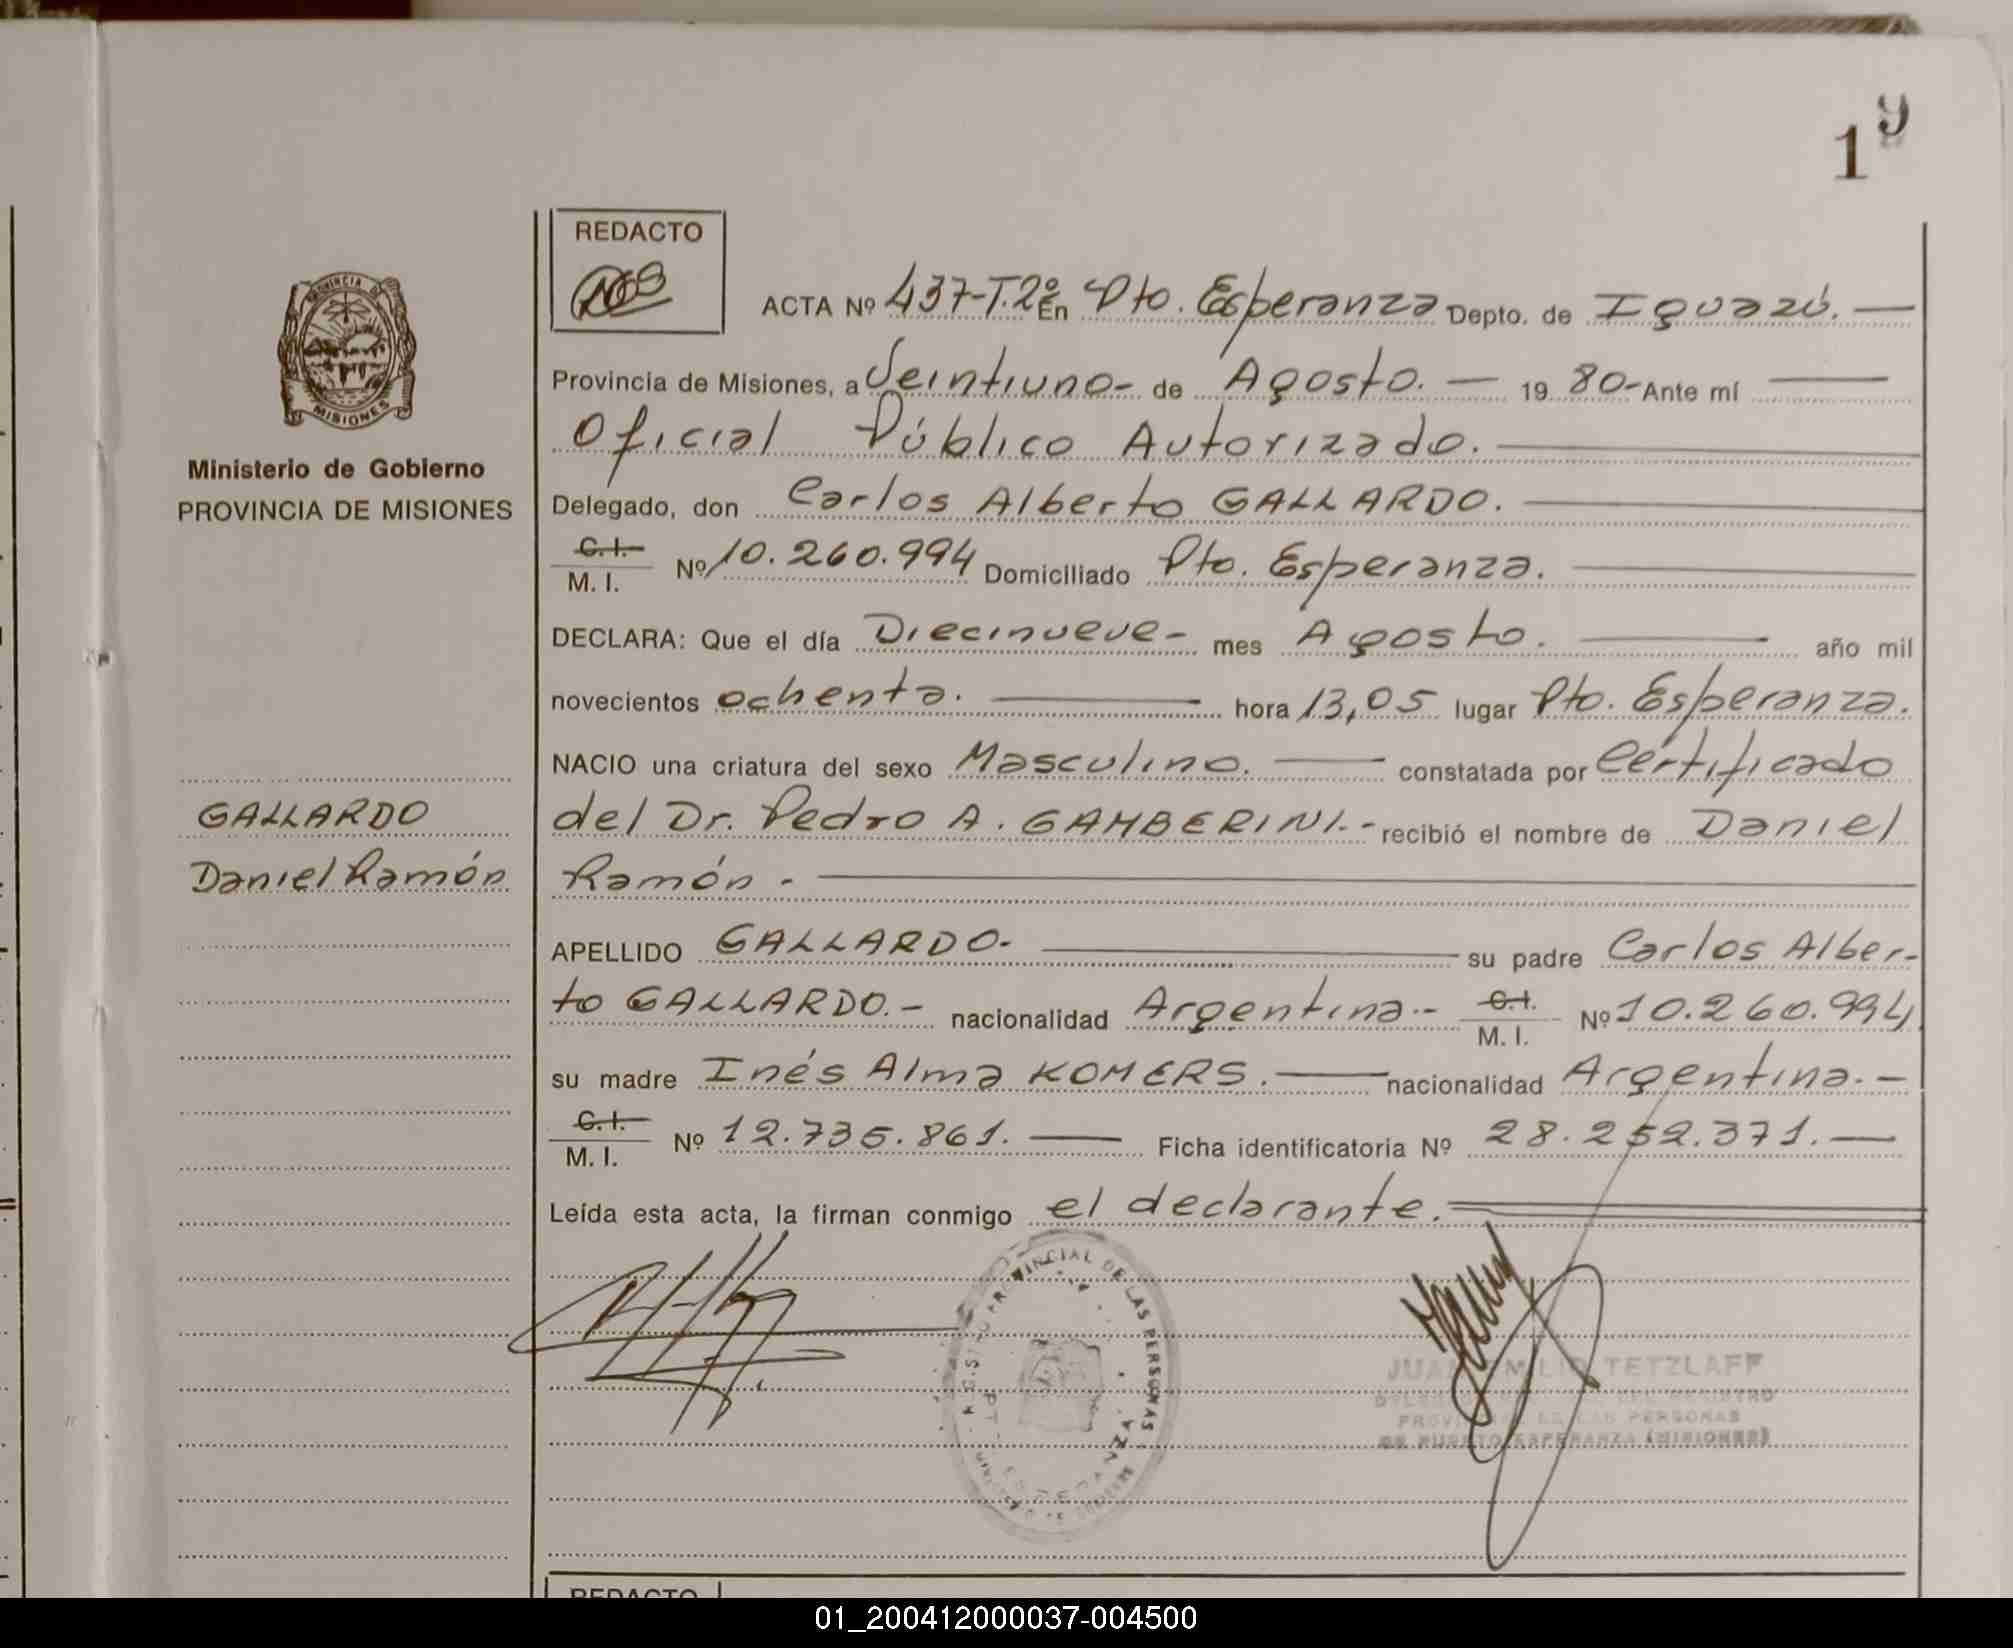 19
REDACTO
ACTA Nº 437-T.2º En Pto. Esperanza Depto. de Iguazú.
Provincia de Misiones, a Veintiuno- de Agosto. — 19 80- Ante mí
Oficial Público Autorizado.
Delegado, don Carlos Alberto GALLARDO.
C.I.
M. I. Nº 10.260.994 Domiciliado Pto. Esperanza.
DECLARA: Que el día Diecinueve- mes Agosto. año mil
novecientos ochenta. hora 13,05 lugar Pto. Esperanza.
NACIO una criatura del sexo Masculino. constatada por Certificado
del Dr. Pedro A. GAMBERINI.- recibió el nombre de Daniel
Ramón -
APELLIDO GALLARDO- su padre Carlos Alber-
to GALLARDO.- nacionalidad Argentina.- C.I.
M. I. Nº 10.260.994
su madre Inés Alma KOMERS. nacionalidad Argentina.-
C.I.
M. I. Nº 12.735.861. Ficha identificatoria Nº 28.252.371.
Leída esta acta, la firman conmigo el declarante.
PROVINCIA DE
MISIONES
Ministerio de Gobierno
PROVINCIA DE MISIONES
GALLARDO
Daniel Ramón
PROVINCIAL DE LAS PERSONAS
JUAN EMILIO TETZLAFF
REGISTRO
PROVINCIAL DE LAS PERSONAS
DE PUERTO ESPERANZA (MISIONES)
REDACTO
01_200412000037-004500